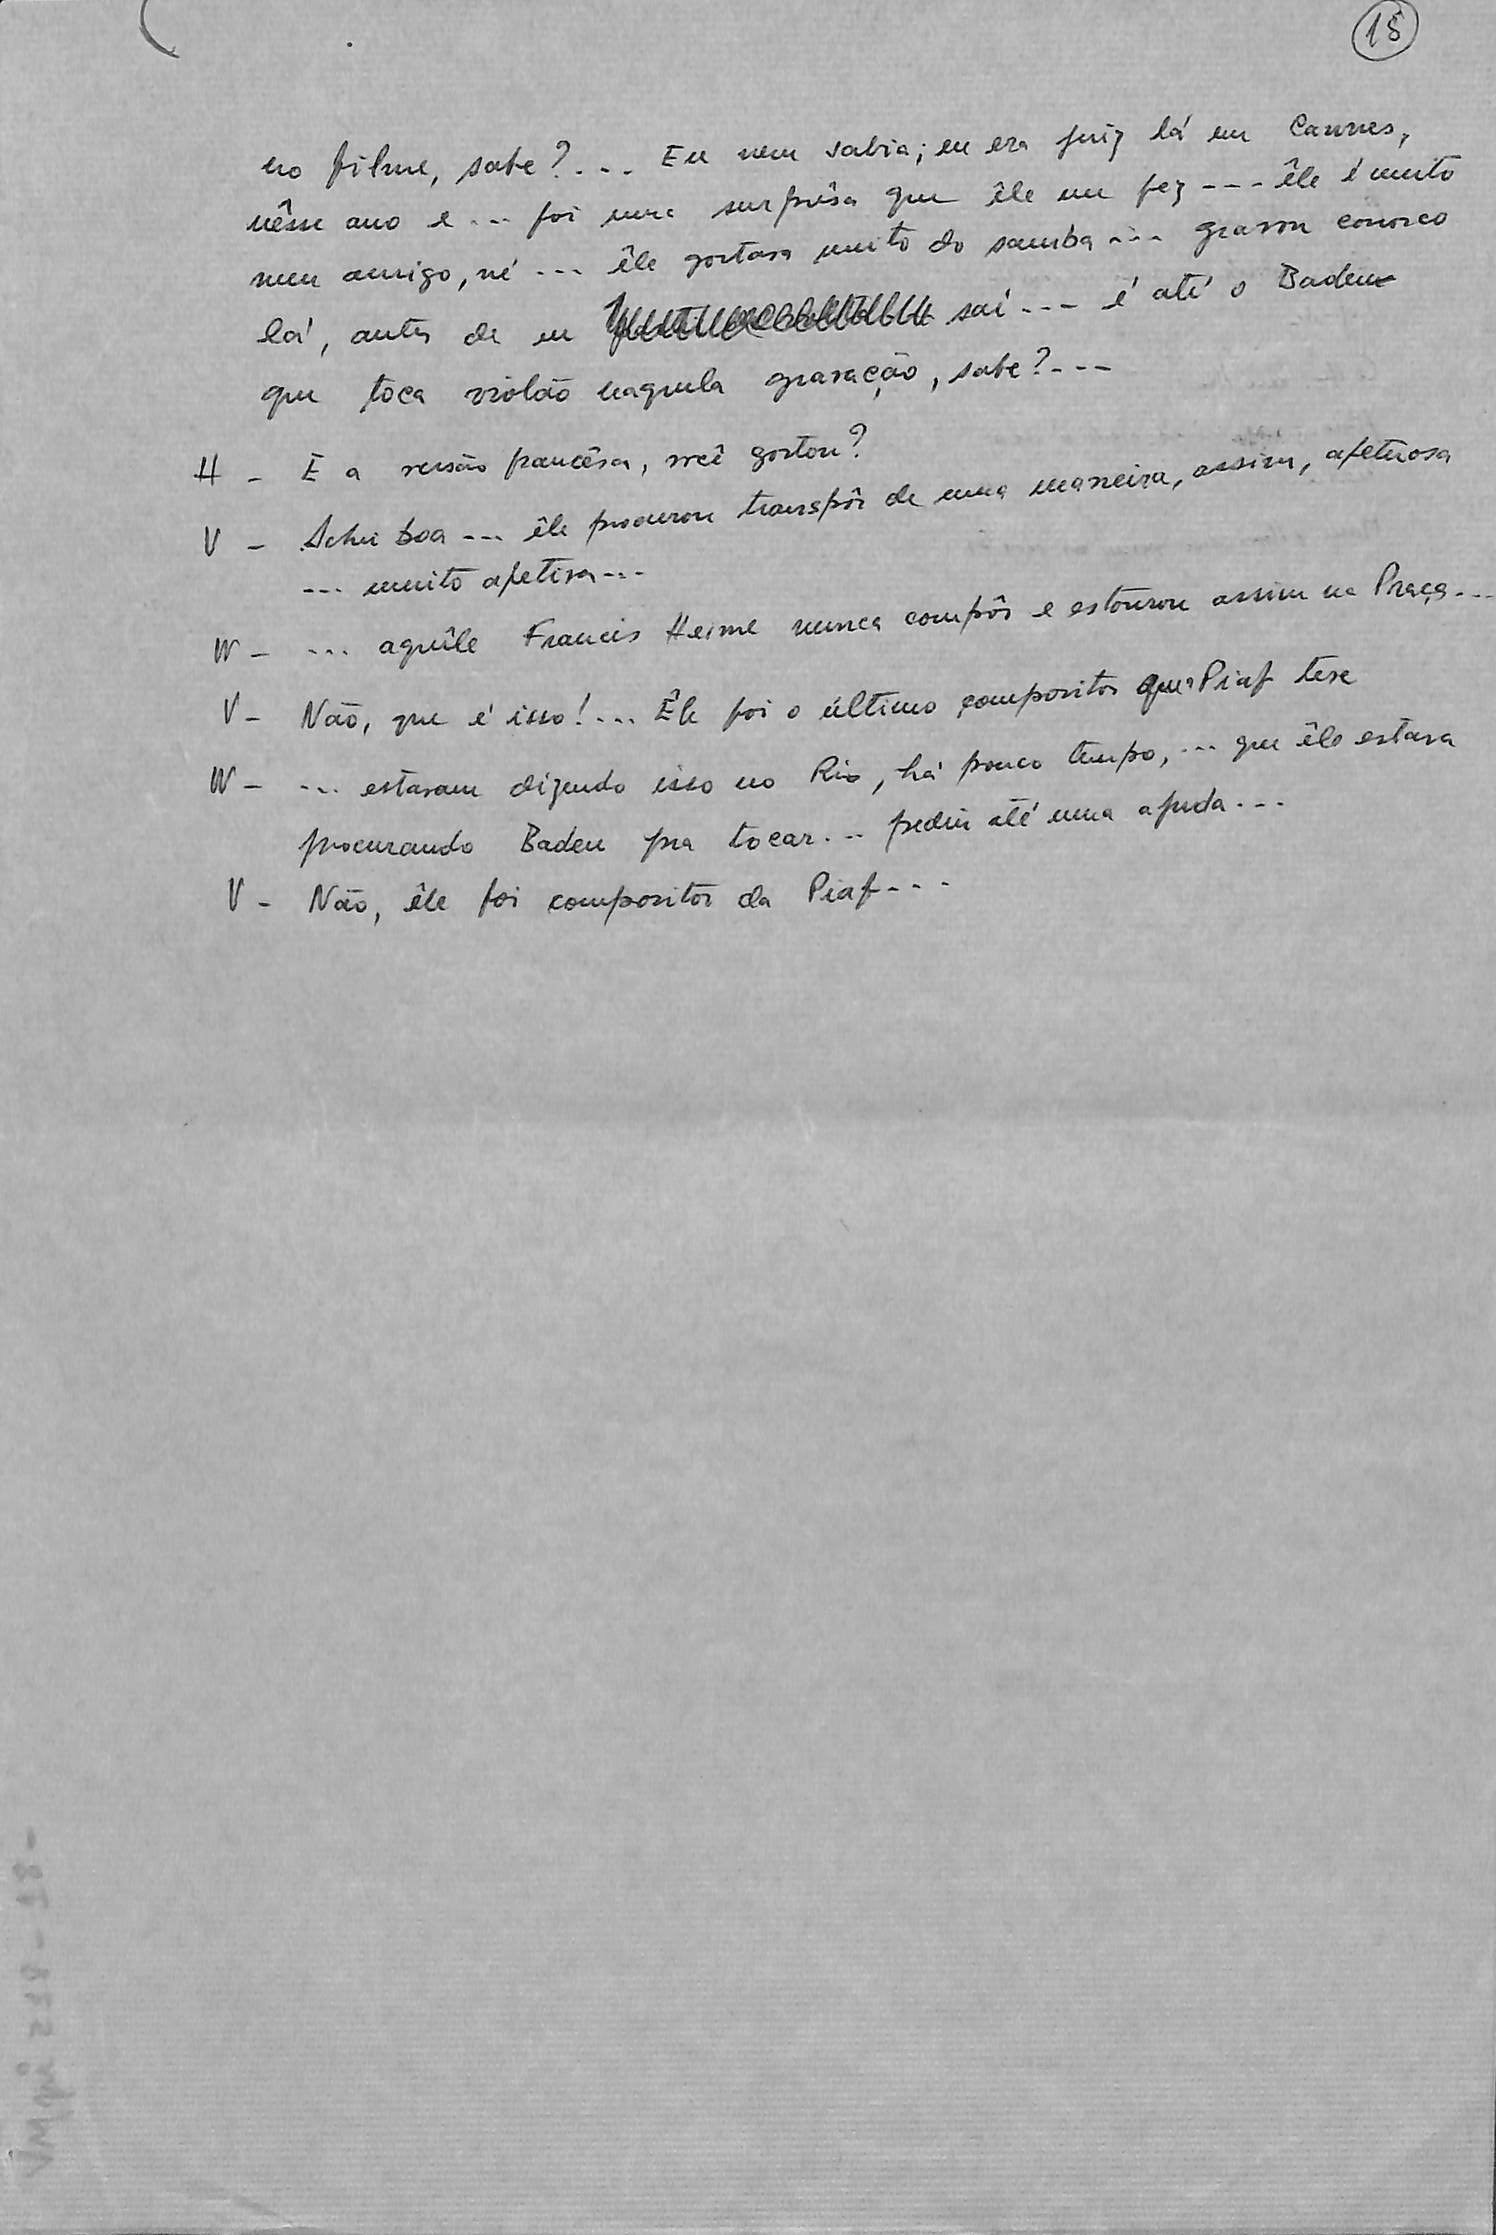 15
no filme, sabe?... Eu nem sabia; eu era juiz lá em Cannes,
nêsse ano e... foi uma surprêsa que êle me fez --- êle é muito
meu amigo, né... êle gostava muito do samba... gravou conosco
lá, antes de eu sai --- é até o Baden
que toca violão naquela gravação, sabe?---
H - E a versão francêsa, você gostou?
V - Achei boa --- êle procurou transpôr de uma maneira, assim, afetuosa
--- muito afetiva---
W - ... aquêle Francis Heime nunca compôs e estourou assim na Praça...
V - Não, que é isso!... Êle foi o último compositor que Piaf teve
W - ... estavam dizendo isso no Rio, há pouco tempo, ... que êle estava
procurando Baden pra tocar... pediu até uma ajuda...
V - Não, êle foi compositor da Piaf---